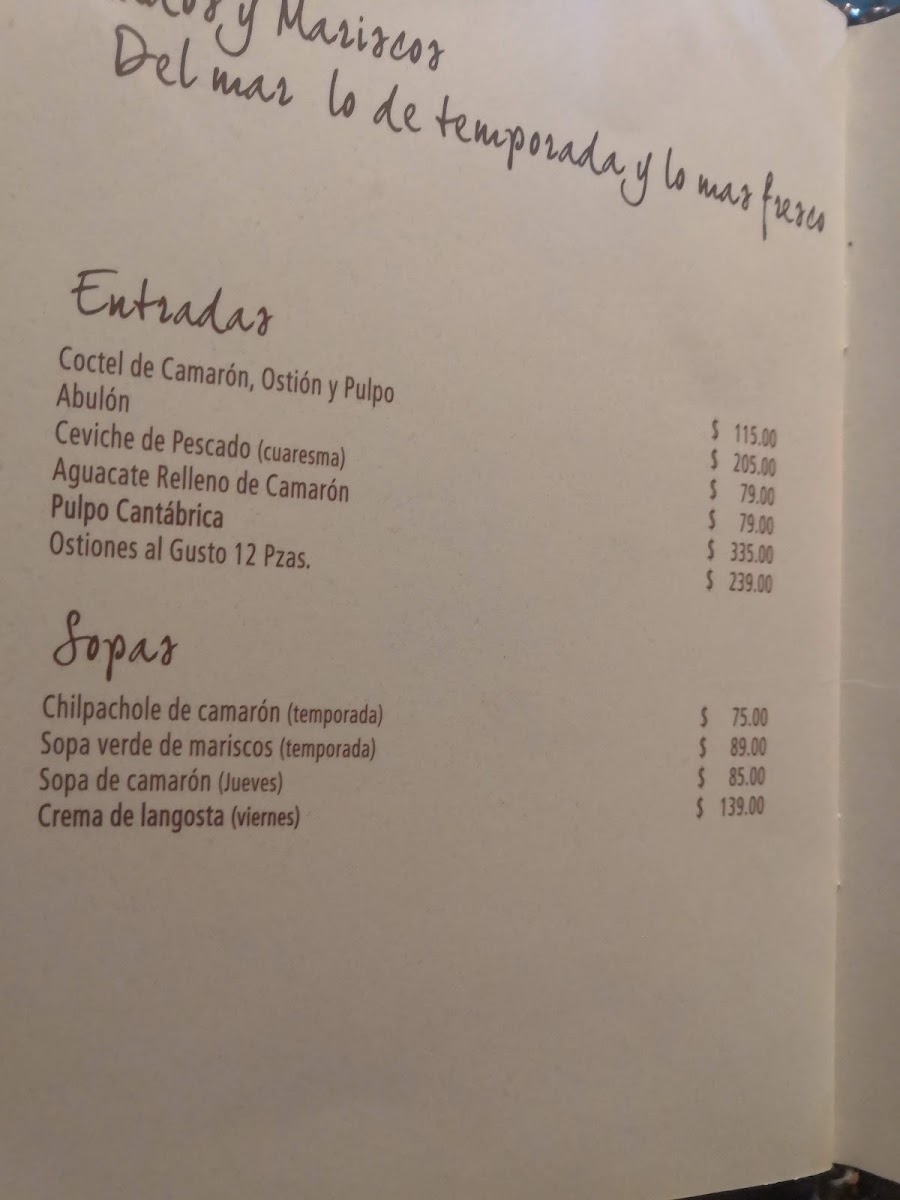 y Mariscos
Del mar lo de temporada y lo mas fresco
Entradas
Coctel de Camarón, Ostión y Pulpo $ 115.00
Abulón $ 205.00
Ceviche de Pescado (cuaresma) $ 79.00
Aguacate Relleno de Camarón $ 79.00
Pulpo Cantábrica $ 335.00
Ostiones al Gusto 12 Pzas. $ 239.00
Sopas
Chilpachole de camarón (temporada) $ 75.00
Sopa verde de mariscos (temporada) $ 89.00
Sopa de camarón (Jueves) $ 85.00
Crema de langosta (viernes) $ 139.00